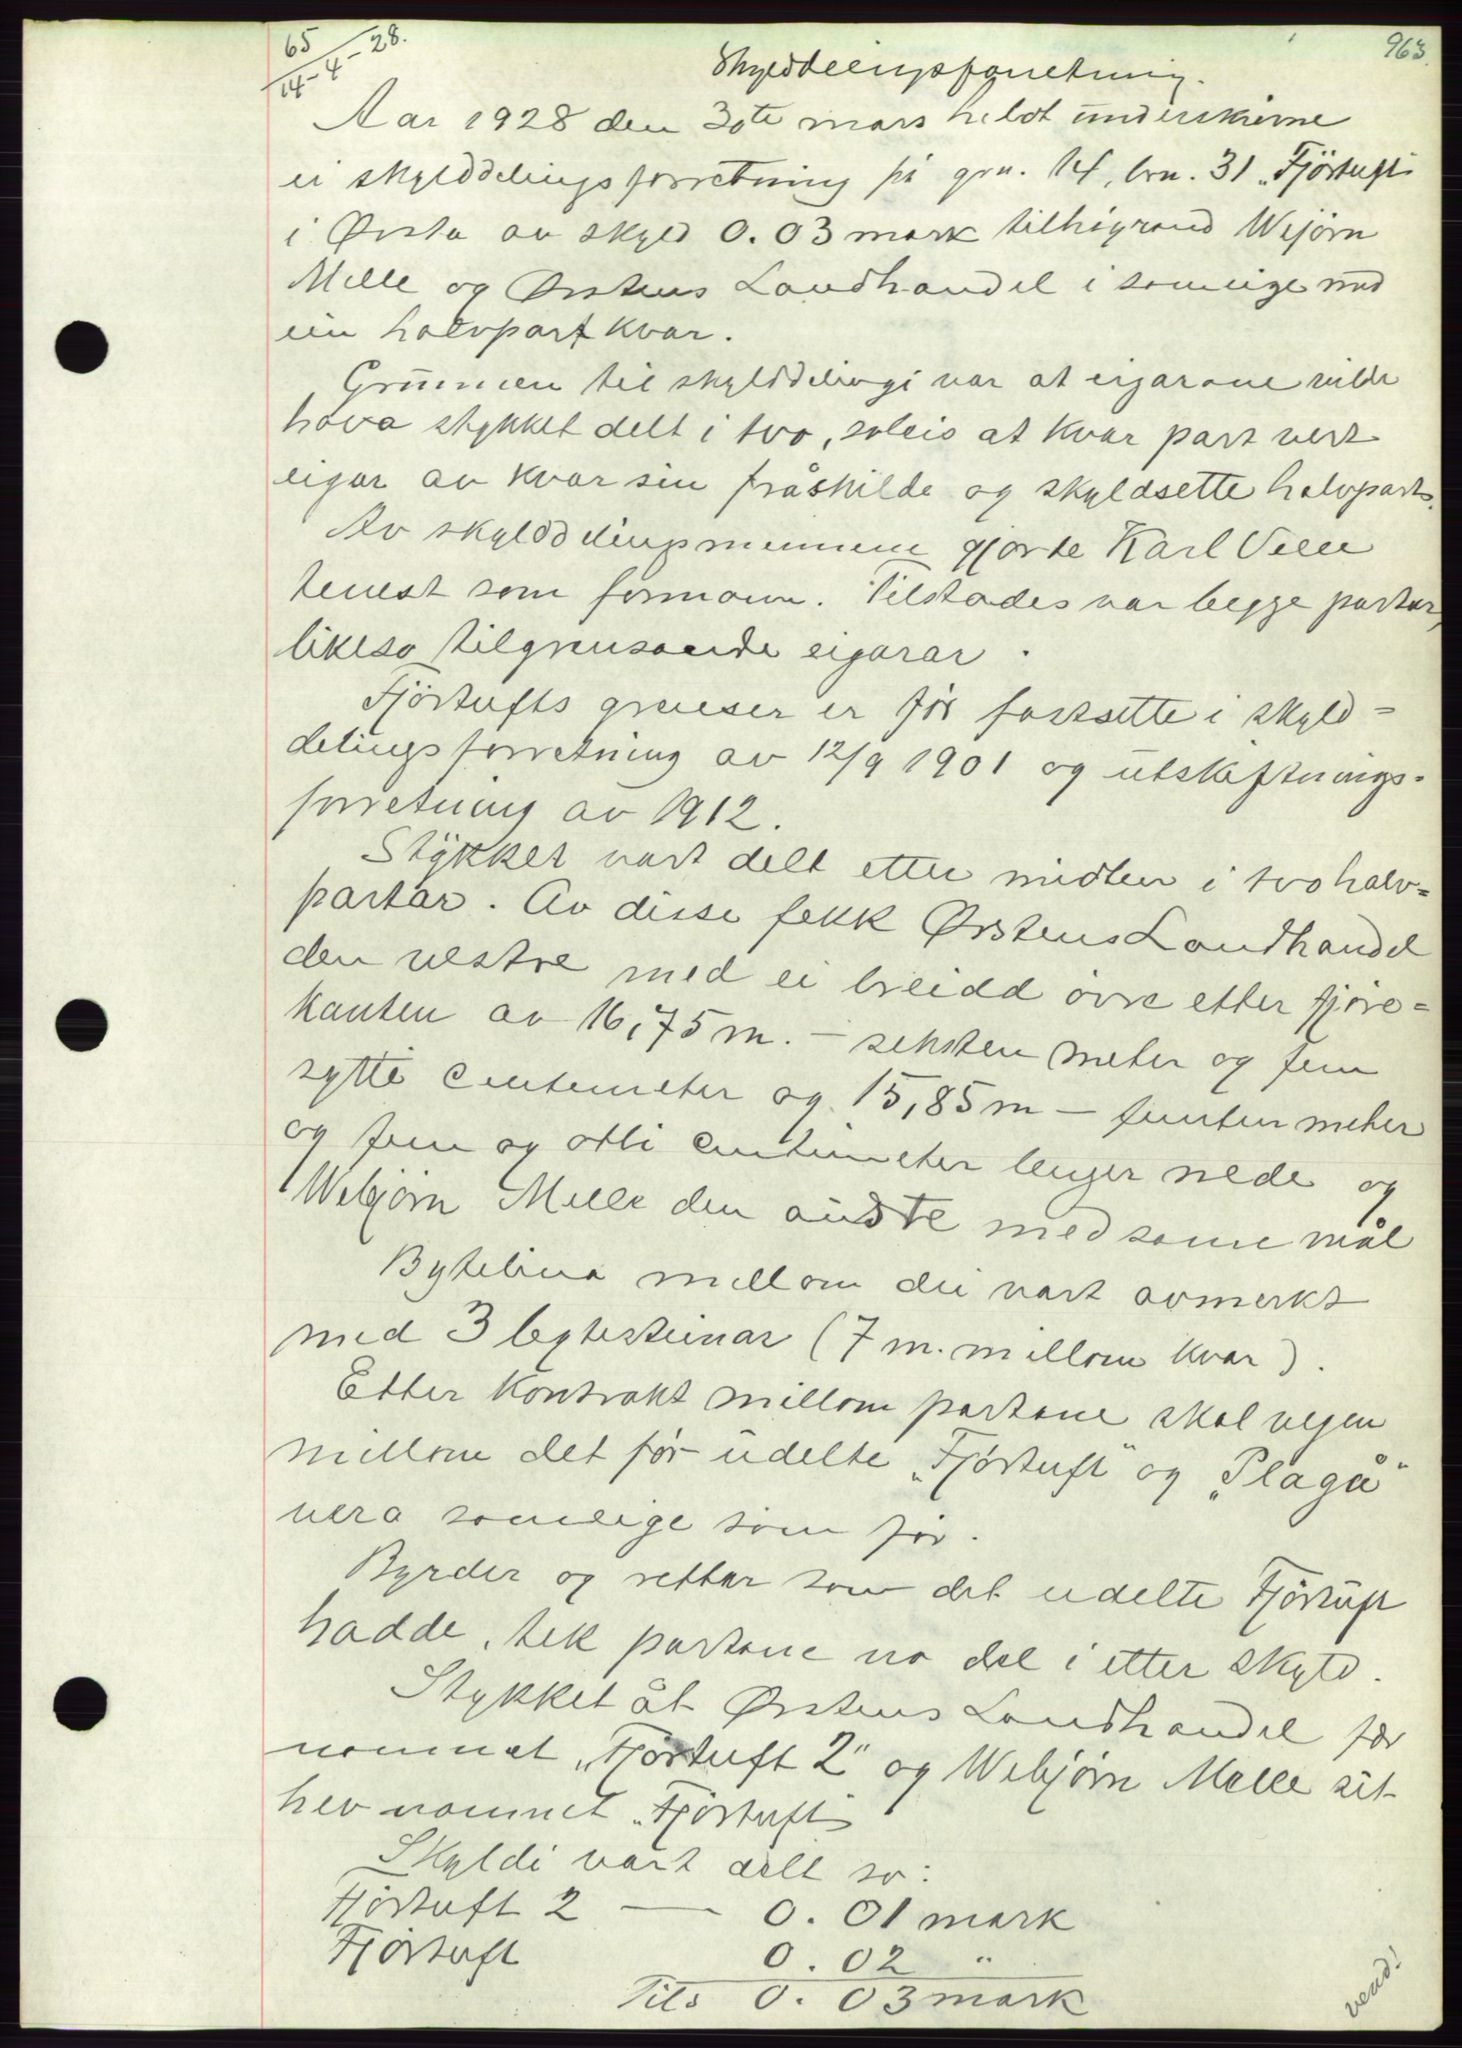 963.
65
14-4-28.
Skylddelingsforretning.
Aar 1928 den 30te mars heldt underskrivne
ei skylddelingsforretning på grn. 14, brn. 31 „Fjörtuft"
i Ørsta av skyld 0.03 mark tilhøyrand Webjörn
Melle og Ørstens Landhandel i sameige med
ein halvpart kvar.
Grunnen til skylddelingi var at eigarane vilde
hava stykket delt i tvo, soleis at kvar part vert
eigar av kvar sin fråskilde og skyldsette halvpart.
Av skylddelingsmennene gjorde Karl Velle
tenest som formann. Tilstades var begge partar,
likeso tilgrensande eigarar.
Fjörtufts grenser er før fastsette i skyld-
delingsforretning av 12/9 1901 og utskiftnings-
forretning av 1912.
Stykket vart delt etter midten i tvo halv-
partar. Av disse fekk Ørstens Landhandel
den vestre med ei breidd øvre etter fjøre-
kanten av 16,75 m. – seksten meter og fem
sytti centemeter og 15,85 m – femten meter
og fem og otti centimeter lenger nede og
Webjørn Melle den austre med same mål
Bytelina millom dei vart avmerkt
med 3 bytesteinar (7 m. millom kvar).
Etter kontrakt millom partane skal vegen
millom det før udelte „Fjörtuft" og „Plagå"
vera sameige som før.
Byrder og rettar som det udelte Fjörtuft
hadde, tek partane no del i etter skyld.
Stykket åt Ørstens Landhandel fær
namnet „Fjörtuft 2" og Webjørn Melle sit
hev namnet „Fjörtuft"
Skyldi vart delt so:
Fjörtuft 2 — 0.01 mark
Fjörtuft 0.02 "
Tils 0.03 mark
vend!